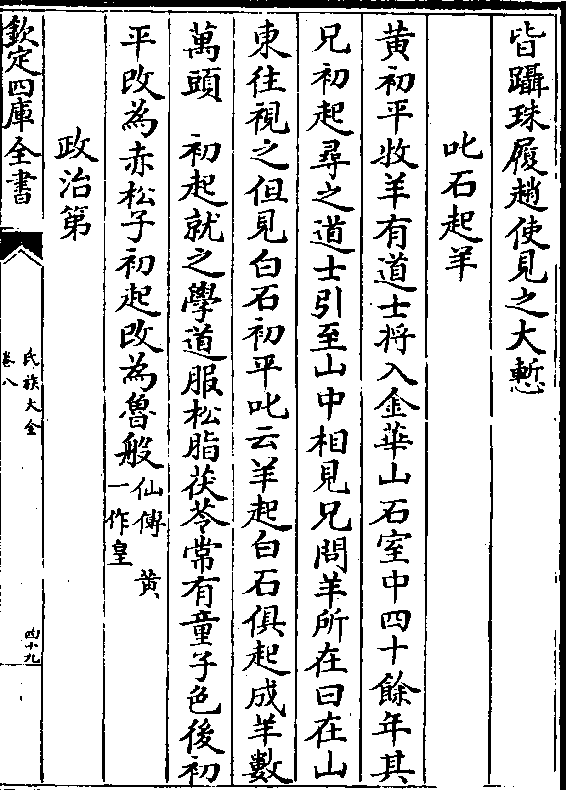 皆躡珠履趙使見之大慙
叱石起羊
黄初平牧羊有道士將入金華山石室中四十餘年其
兄初起尋之道士引至山中相見兄問羊所在曰在山
東往視之但見白石初平叱云羊起白石俱起成羊數
萬頭　初起就之學道服松脂茯苓常有童子色後初
平改為赤松子初起改為魯般仙傳　黄
一作皇
政治第
欽定四庫全書
氏族大全
卷八
四十九